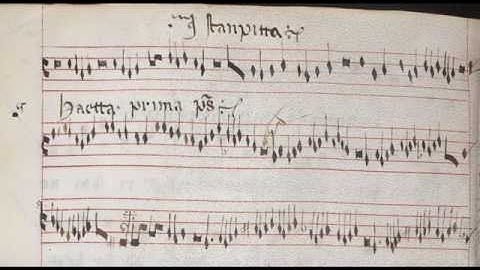 Istanpitta
g haetta. prima ps